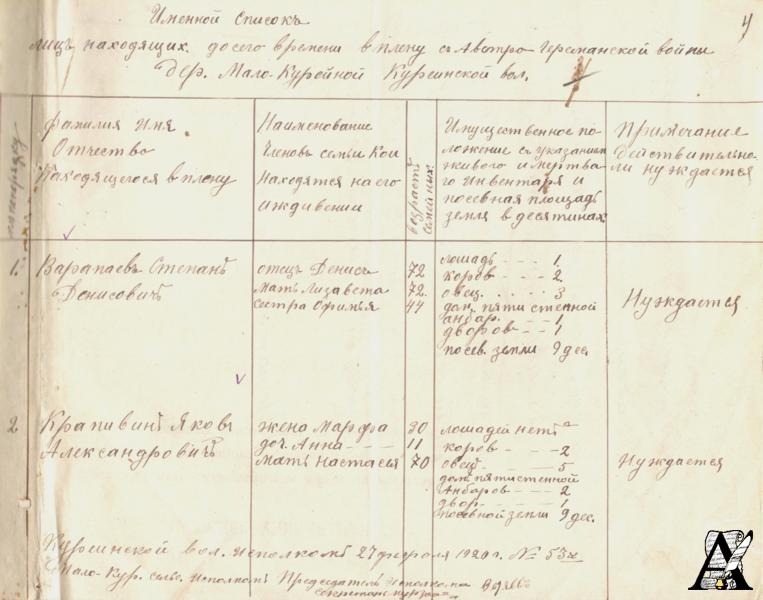 4
Именной Списокъ
лицъ находящих. до сего времени в плену съ Австро-Германской войны
дер. Мало-Курейной Куреинской вол.
Фамилия Имя
Отчество
Находящегося в плену
Наименование
Членовъ семьи Кои
Находятся на его
иждивении
возрастъ
семейных.
Имущественное по-
ложение съ указанием
живого и мертва-
го инвентаря и
посевная площадь
земля в десятинах
Примечание
действительно-
ли нуждается
1. Варапаевъ Степанъ
Денисович
отец Денисъ 72
Мать Лизавета 72.
сестра Офимья 44
лошадь - - - 1.
коров - - - 2
овец. . . . . 3
дом. пяти стенной
анбар. - - - 1
дворов - - 1
посев. земли 9 дес.
Нуждается
2 Крапивинъ Яковъ
Александровичъ
жена Марфа 30
доч. Анна - - - 11
Мать Настасья 70
лошадей нетъ
коров - - - - 2
овец - - - - 5
дом. пятистенной
Анбаров - - - 2
двор - - - - 1
посевной земли 9 дес.
Нуждается
вол. исполкомъ 27 февраля 1920 г. №
Мало-Кур. сель. исполком Председатель исполкома
А